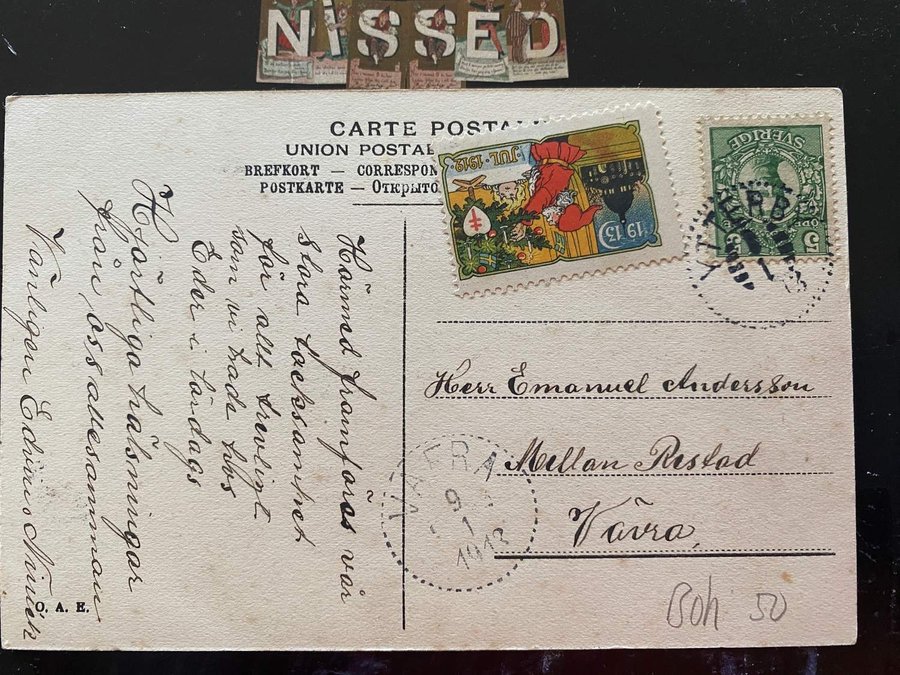 NiSSED
CARTE POSTAL
UNION POSTAL
BREFKORT — CORRESPON
POSTKARTE — Открыто
JUL·1912
1913
SVERIGE
5
Härmed framföres vår
stora tacksamhet
för allt trevligt
som vi hade hos
Eder i lördags
Hjärtliga hälsningar
från oss allesamman
Vänligen Edvin
O. A. E.
Herr Emanuel Andersson
Mellan Restad
Vävra
1913
Boh 50